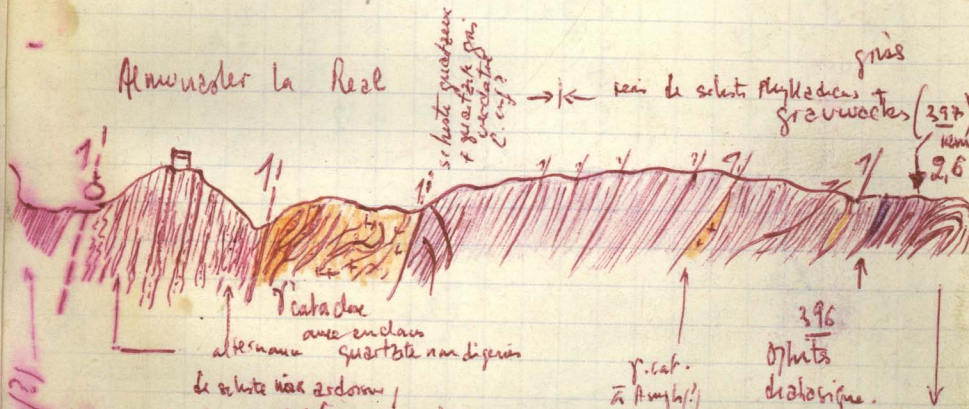 Almonaster La Real
schiste quartzeux
+ quartzite gris
verdatre
C. inf?
grès
serie de schistes phylladeux +
grauwackes (397)
2,6
γ cataclase
avec enclaves
quartzite non digeriés
alternance
de schiste noir ardoiseux
γ. cat.
à Amph(?)
396
Ophite
diabasique.
(?)